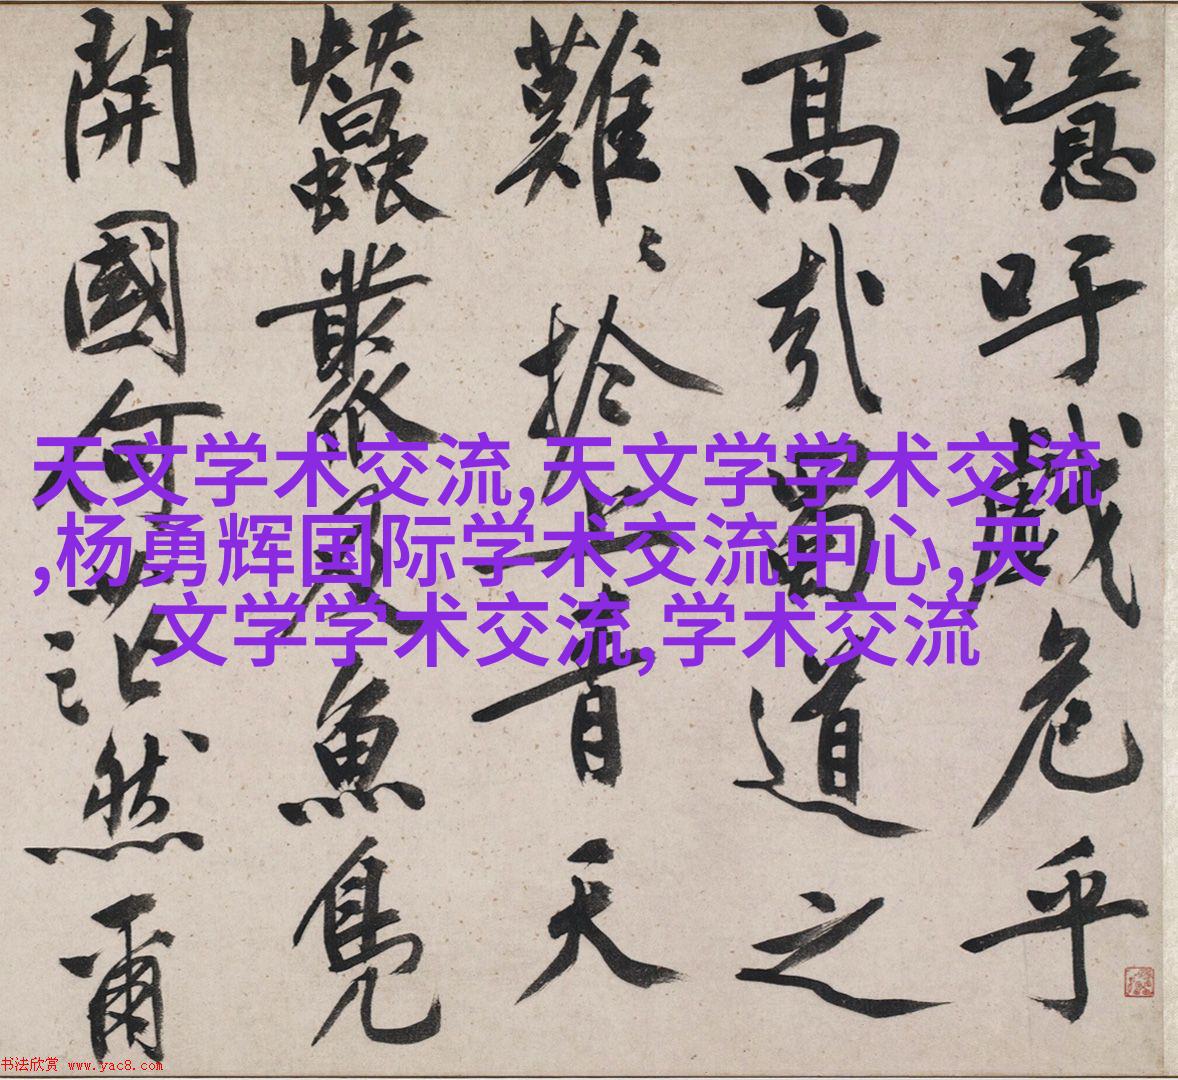 噫吁戲危乎
高哉蜀道之
難〻於上青天
蠶叢及魚鳧
開國何茫然爾
天文学术交流,天文学学术交流
,杨勇辉国际学术交流中心,天
文学学术交流,学术交流
书法欣赏 www.yac8.com